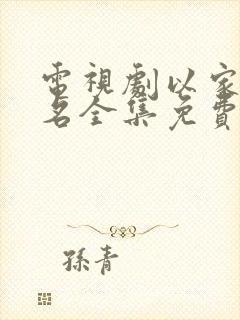 電視劇以家
名全集免費
孫青